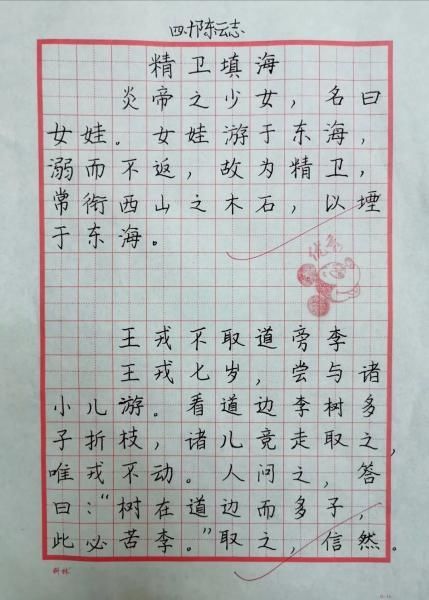 四.邝东云志
精卫填海
炎帝之少女，名曰
女娃。女娃游于东海，
溺而不返，故为精卫，
常衔西山之木石，以堙
于东海。
优秀
王戎不取道旁李
王戎七岁，尝与诸
小儿游。看道边李树多
子折枝，诸儿竞走取之，
唯戎不动。人问之，答
曰：“树在道边而多子，
此必苦李。”取之，信然。